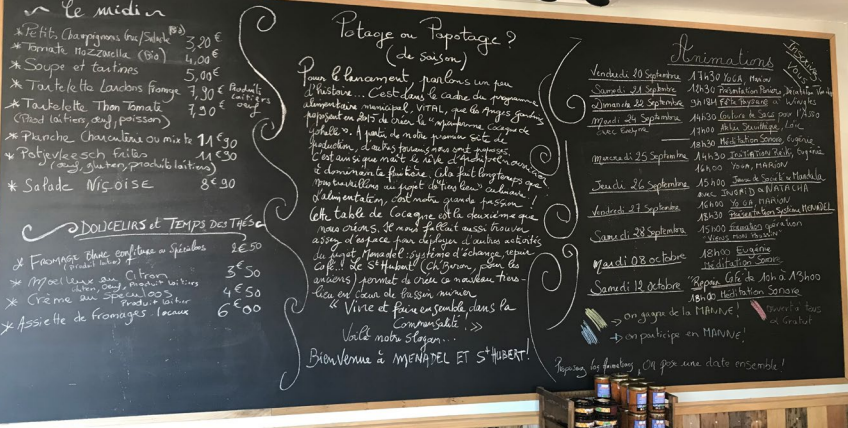 Le midi
* Petits Champignons Grec/Salade (Bio) 3,20€
* Tomate Mozzarella (Bio) 4,00€
* Soupe et tartines 5,00€
* Tartelette Lardons fromage 7,90€ Produits laitiers oeuf
* Tartelette Thon Tomate 7,90€
(Prod laitiers, oeuf, poisson)
* Planche Charcuterie ou mixte 11€90
* Potjevleesch frites 11€90
(oeuf, gluten, produits laitiers)
* Salade Niçoise 8€90
Douceurs et Temps des Thés
* Fromage blanc confiture ou Spéculoos 2€50
(produit laitier)
* Moelleux au Citron 3€50
Gluten, Oeuf, Produits laitiers
* Crème au Speculoos 4€50
Produit laitier
* Assiette de fromages locaux 6€00
Potage ou Papotage ?
(de saison)
Pour le lancement, parlons un peu
d'histoire... C'est dans le cadre du programme
alimentaire municipal, VITAL, que les Anges Gardins
proposent en 2015 de créer la
A partir de notre premier site de
production, d'autres terrains nous sont proposés,
C'est ainsi que nait le rêve d'Archipel nourricier
à dominante fruitière. Cela fait longtemps que
nous travaillons au projet de "tiers lieu" culinaire !
L'alimentation, c'est notre grande passion !
Cette table de Cocagne est la deuxième que
nous créons. Il nous fallait aussi trouver
assez d'espace pour déployer d'autres activités
du projet, Menadel : système d'échange, repair
café..! Le St Hubert (Ch'Biron, pour les
anciens) permet de créer ce nouveau tiers-
lieu en coeur de bassin minier
"Vivre et faire ensemble dans la
Commensalité."
Voilà notre slogan...
Bienvenue à MENADEL ET St HUBERT !
Animations
Inscrivez Vous
Vendredi 20 Septembre 17h30 YOGA, Marion
Samedi 21 Septembre 12h30 Présentation Paniers
Dimanche 22 Septembre 9h18H Fête Paysans à Wingles
Mardi 24 Septembre 14h30 Couture de Sacs pour
avec Evelyne 17h00
18h30 Méditation Sonore, Eugénie
Mercredi 25 Septembre 14h30 Initiation Récits, Eugénie
16h00 YOGA, MARION
Jeudi 26 Septembre 15h00 Jeux de Société Mandala
avec INGRID & NATACHA
Vendredi 27 Septembre 16h00 YOGA MARION
18h30 Présentation Système MENADEL
Samedi 28 Septembre 15h00 opération
"Viens mon poussin"
18h00 Eugénie
Méditation Sonore
Mardi 08 octobre
Samedi 12 Octobre "Repair Café" de 10h à 13h00
18h00 Méditation Sonore
→ on gagne de la MANNE !
ouvert à tous & Gratuit
→ on participe en MANNE !
Proposez Vos Animations, On pose une date ensemble !